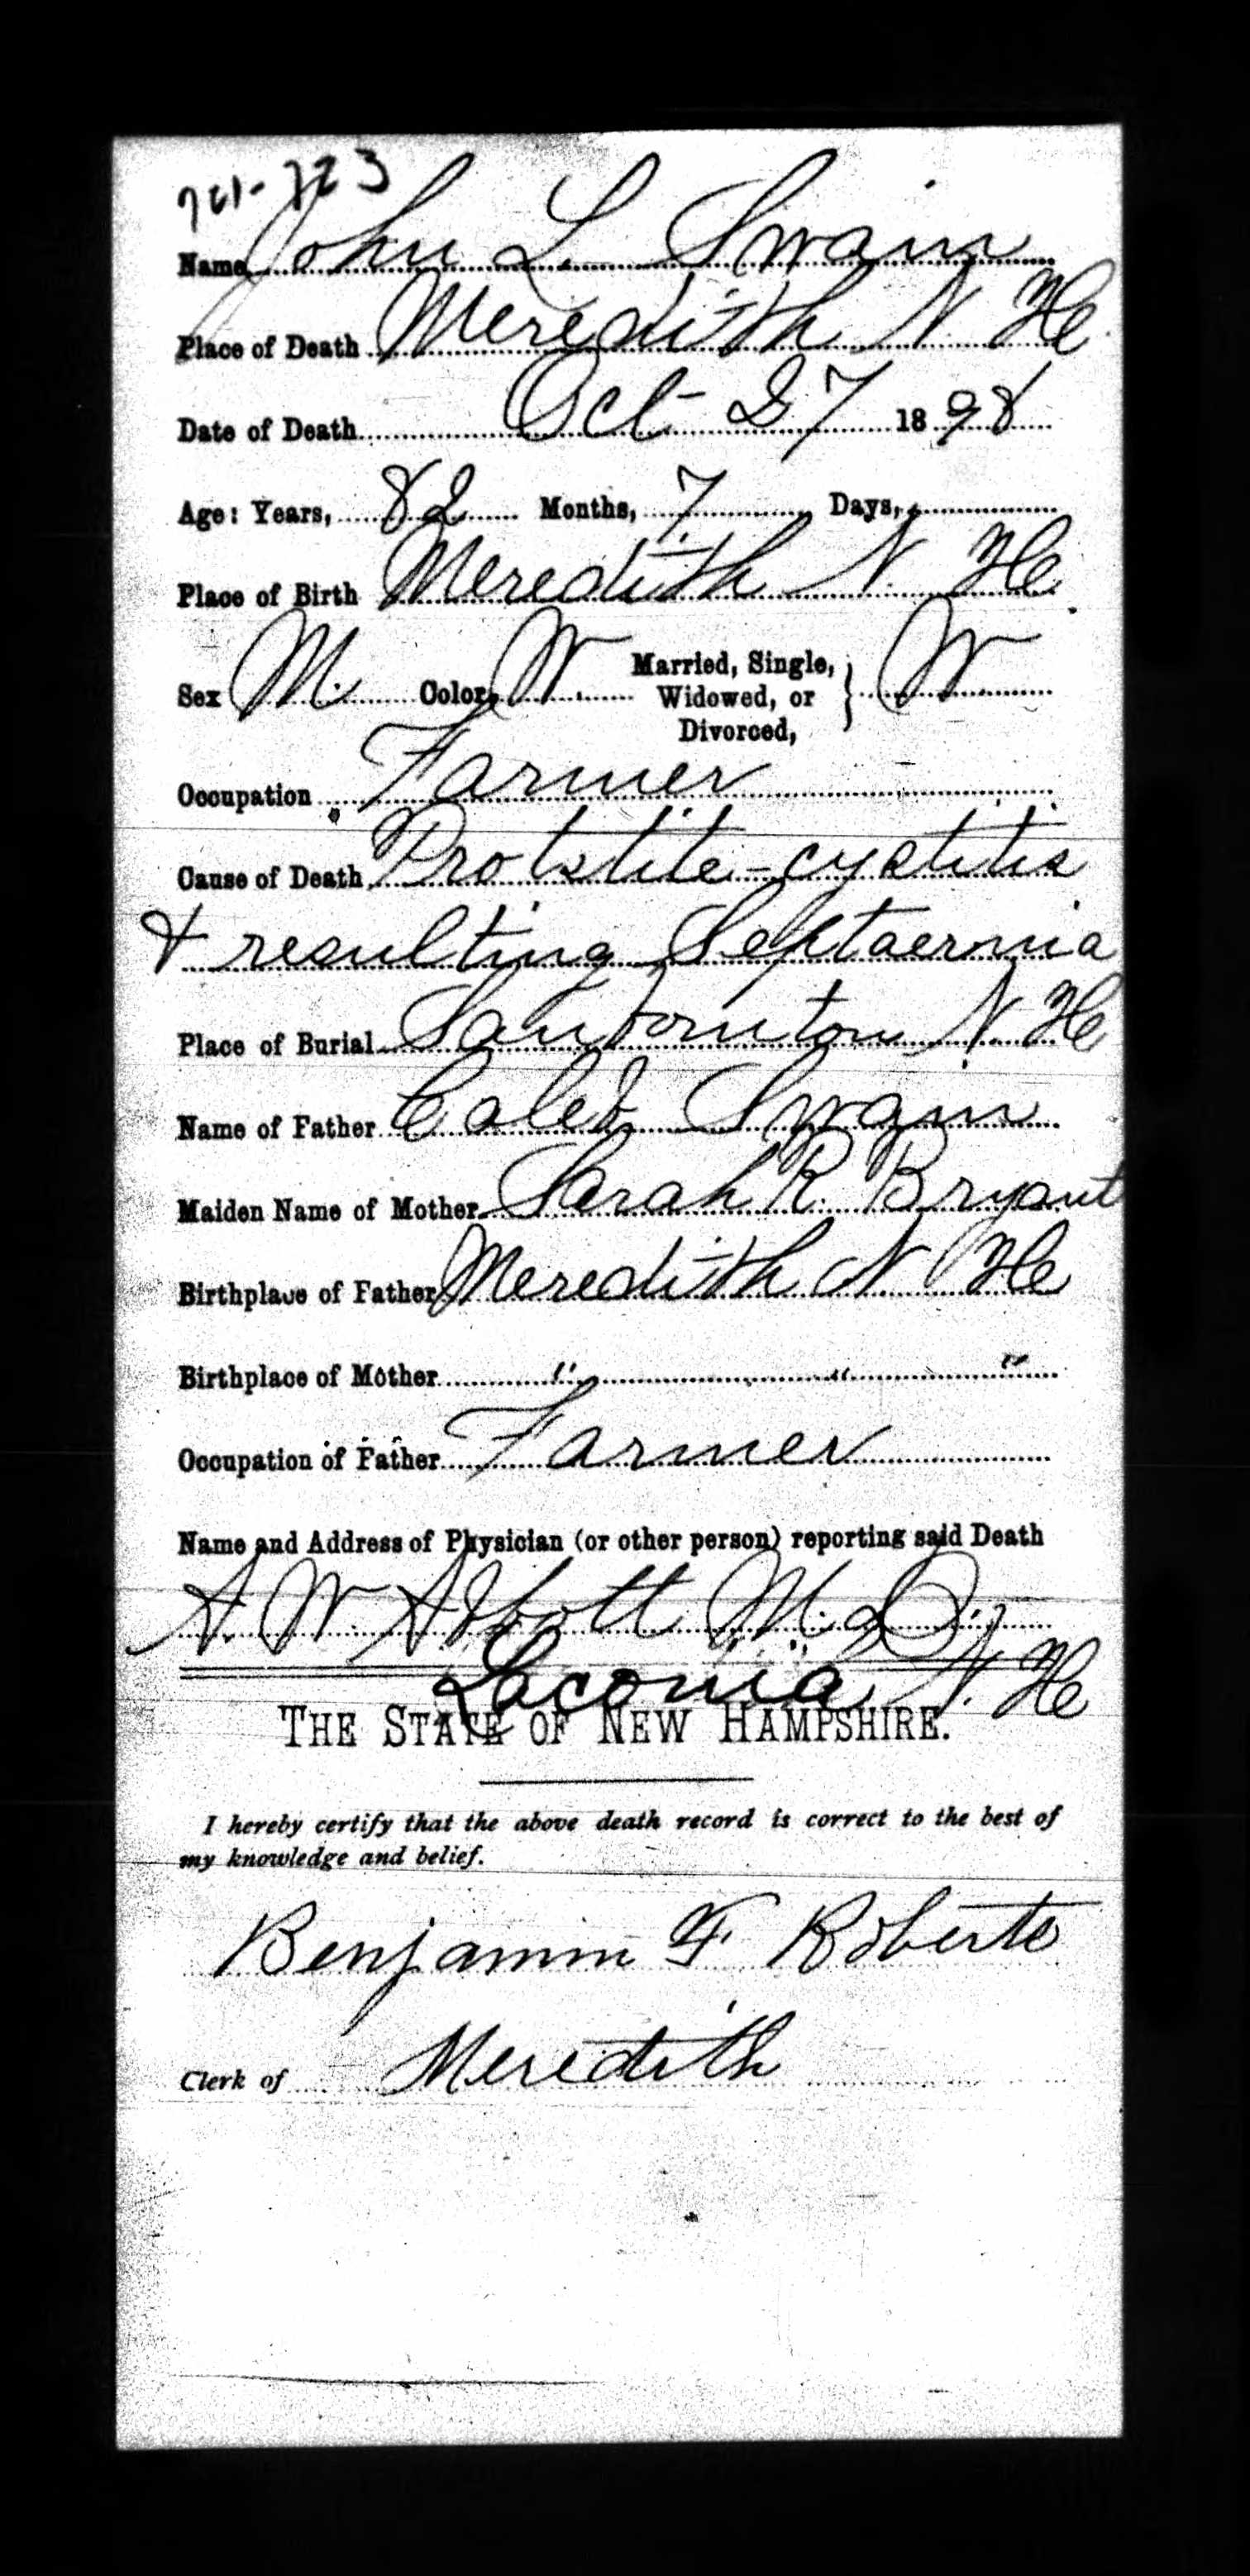 721-723
Name John L. Swain
Place of Death Meredith N. H
Date of Death Oct 27 1898
Age: Years, 82 Months, 7 Days,
Place of Birth Meredith N. H
Sex M. Color, W. Married, Single, Widowed, or Divorced, } W
Occupation Farmer
Cause of Death, Protstite-cystitis
& resulting Septaemia
Place of Burial Sanbornton N. H
Name of Father Caleb Swain
Maiden Name of Mother Sarah R. Bryant
Birthplace of Father Meredith N. H
Birthplace of Mother " " "
Occupation of Father Farmer
Name and Address of Physician (or other person) reporting said Death
A. W Abbott M. D.
Laconia N. H
THE STATE OF NEW HAMPSHIRE.
I hereby certify that the above death record is correct to the best of
my knowledge and belief.
Benjamin F Roberts
Clerk of Meredith